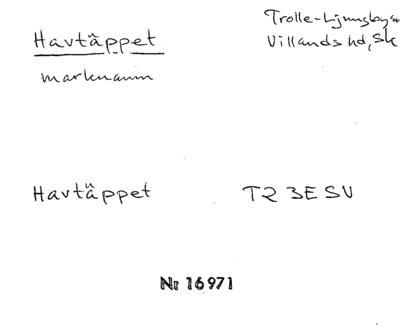 Havtäppet
Trolle-Ljungby sn
Villands hd, Sk
marknamn
Havtäppet T2 3E SV
Nr 16971